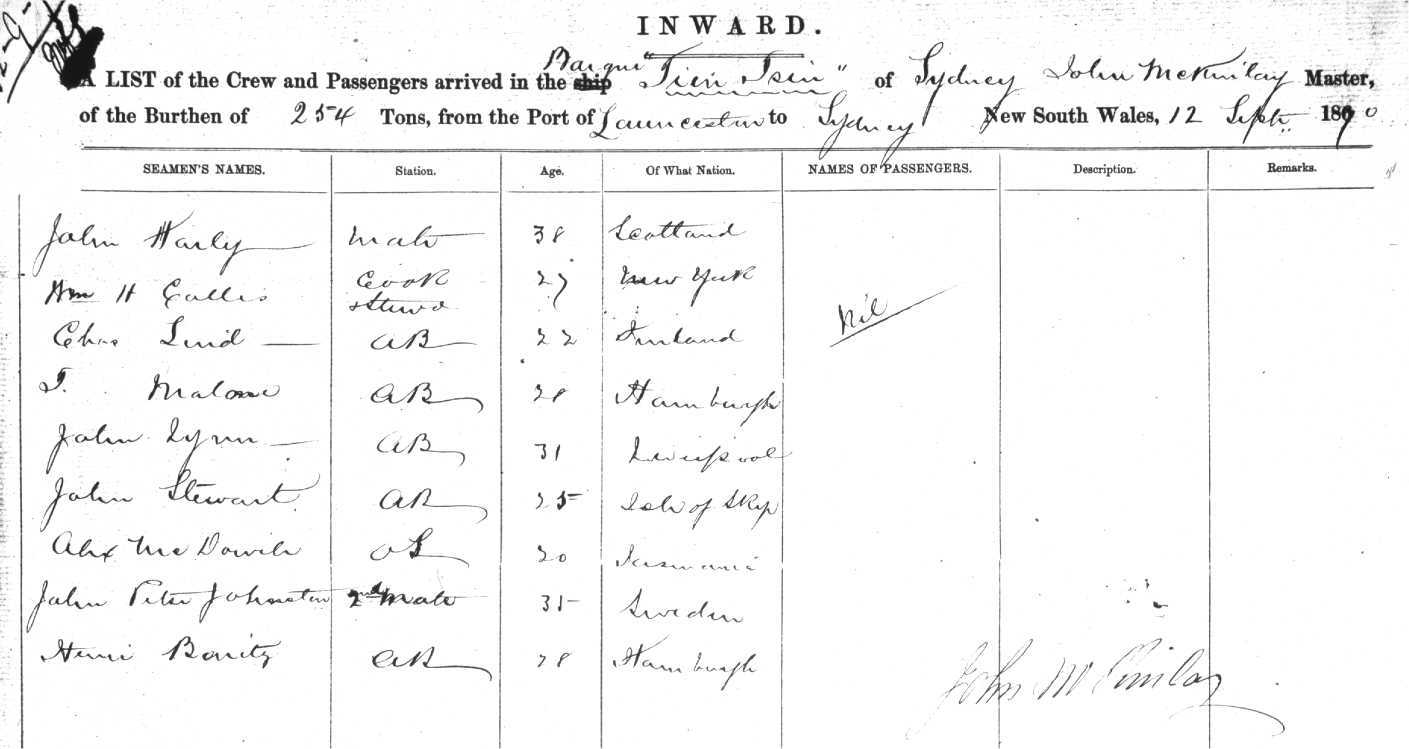 INWARD.
A LIST of the Crew and Passengers arrived in the ship Barque "Tien Tsin" of Sydney John McKinlay Master,
of the Burthen of 254 Tons, from the Port of Launceston to Sydney New South Wales, 12 Sept. 1870
SEAMEN'S NAMES. Station. Age. Of What Nation. NAMES OF PASSENGERS. Description. Remarks.
John Mate 38 Scotland
Wm H Cook 27 New York
Stewd
Nil
Chas Lind AB 22 Finland
T. Malone AB 28 Hamburgh
John Lynn AB 31 Liverpool
John Stewart AB 25 Isle of Skye
Alex Mc OS 20 Tasmania
John Peter Johnston 2nd Mate 35 Sweden
AB 28 Hamburgh
John McKinlay